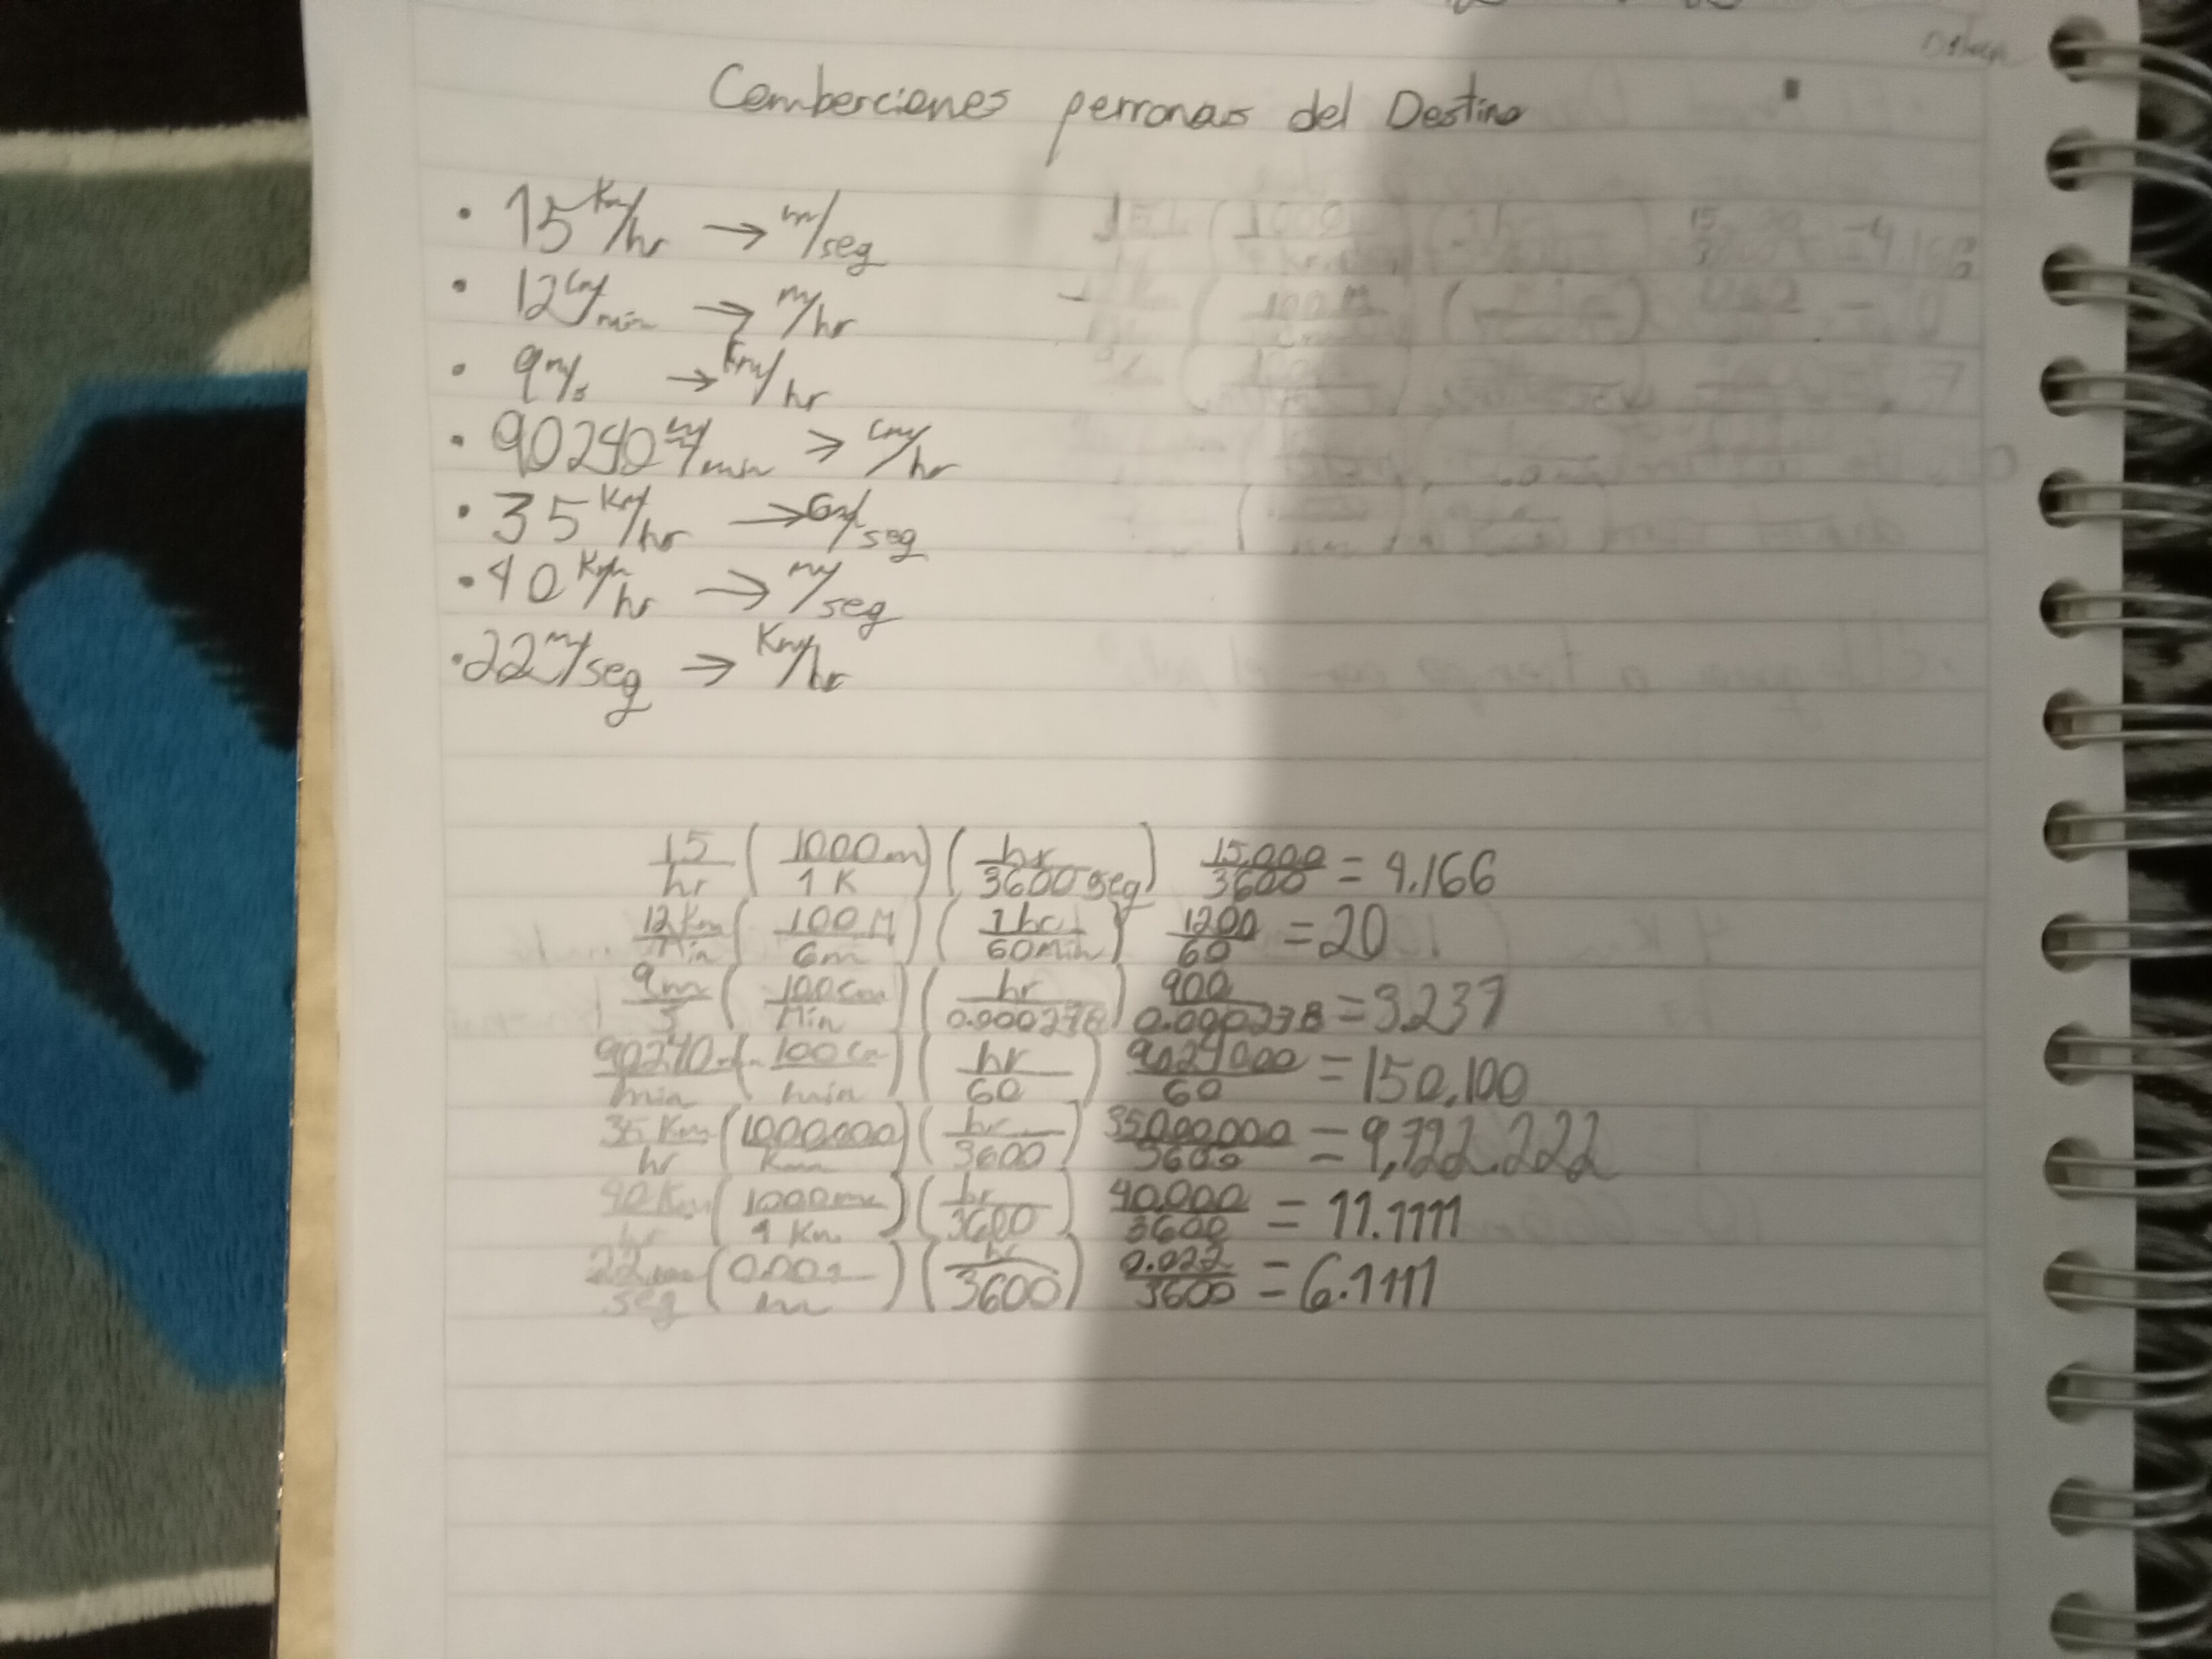 Comberciones perronas del Destino
• 15 Km/hr → m/seg
• 12 Cm/min → m/hr
• 9 m/s → Km/hr
• 90240 m/min → Cm/hr
• 35 Km/hr → Cm/seg
• 40 Km/hr → m/seg
• 22 m/seg → Km/hr
15/hr (1000m/1K) (hr/3600 seg) 15,000/3600 = 4.166
12Km/Min (100M/6m) (1hr/60Min) 1200/60 = 20
9m/s (100cm/Min) (hr/0.000278) 900/0.000278 = 3.237
90240m/min (100Cm/min) (hr/60) 9024000/60 = 150,100
35 Km/hr (1000.000/Km) (hr/3600) 35000000/3600 = 9,722.222
40 Km/hr (1000m/1 Km) (hr/3600) 40.000/3600 = 11.1111
22m/seg (0.001/m) (hr/3600) 0.022/3600 = 6.1111